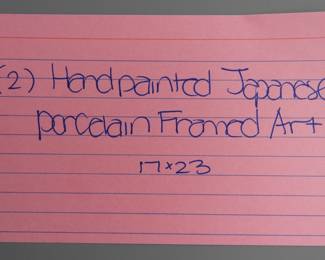 (2) Handpainted Japanese
porcelain Framed Art
17x23